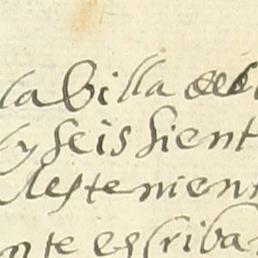 la Villa de
y seis sient
deste nient
nte escriba